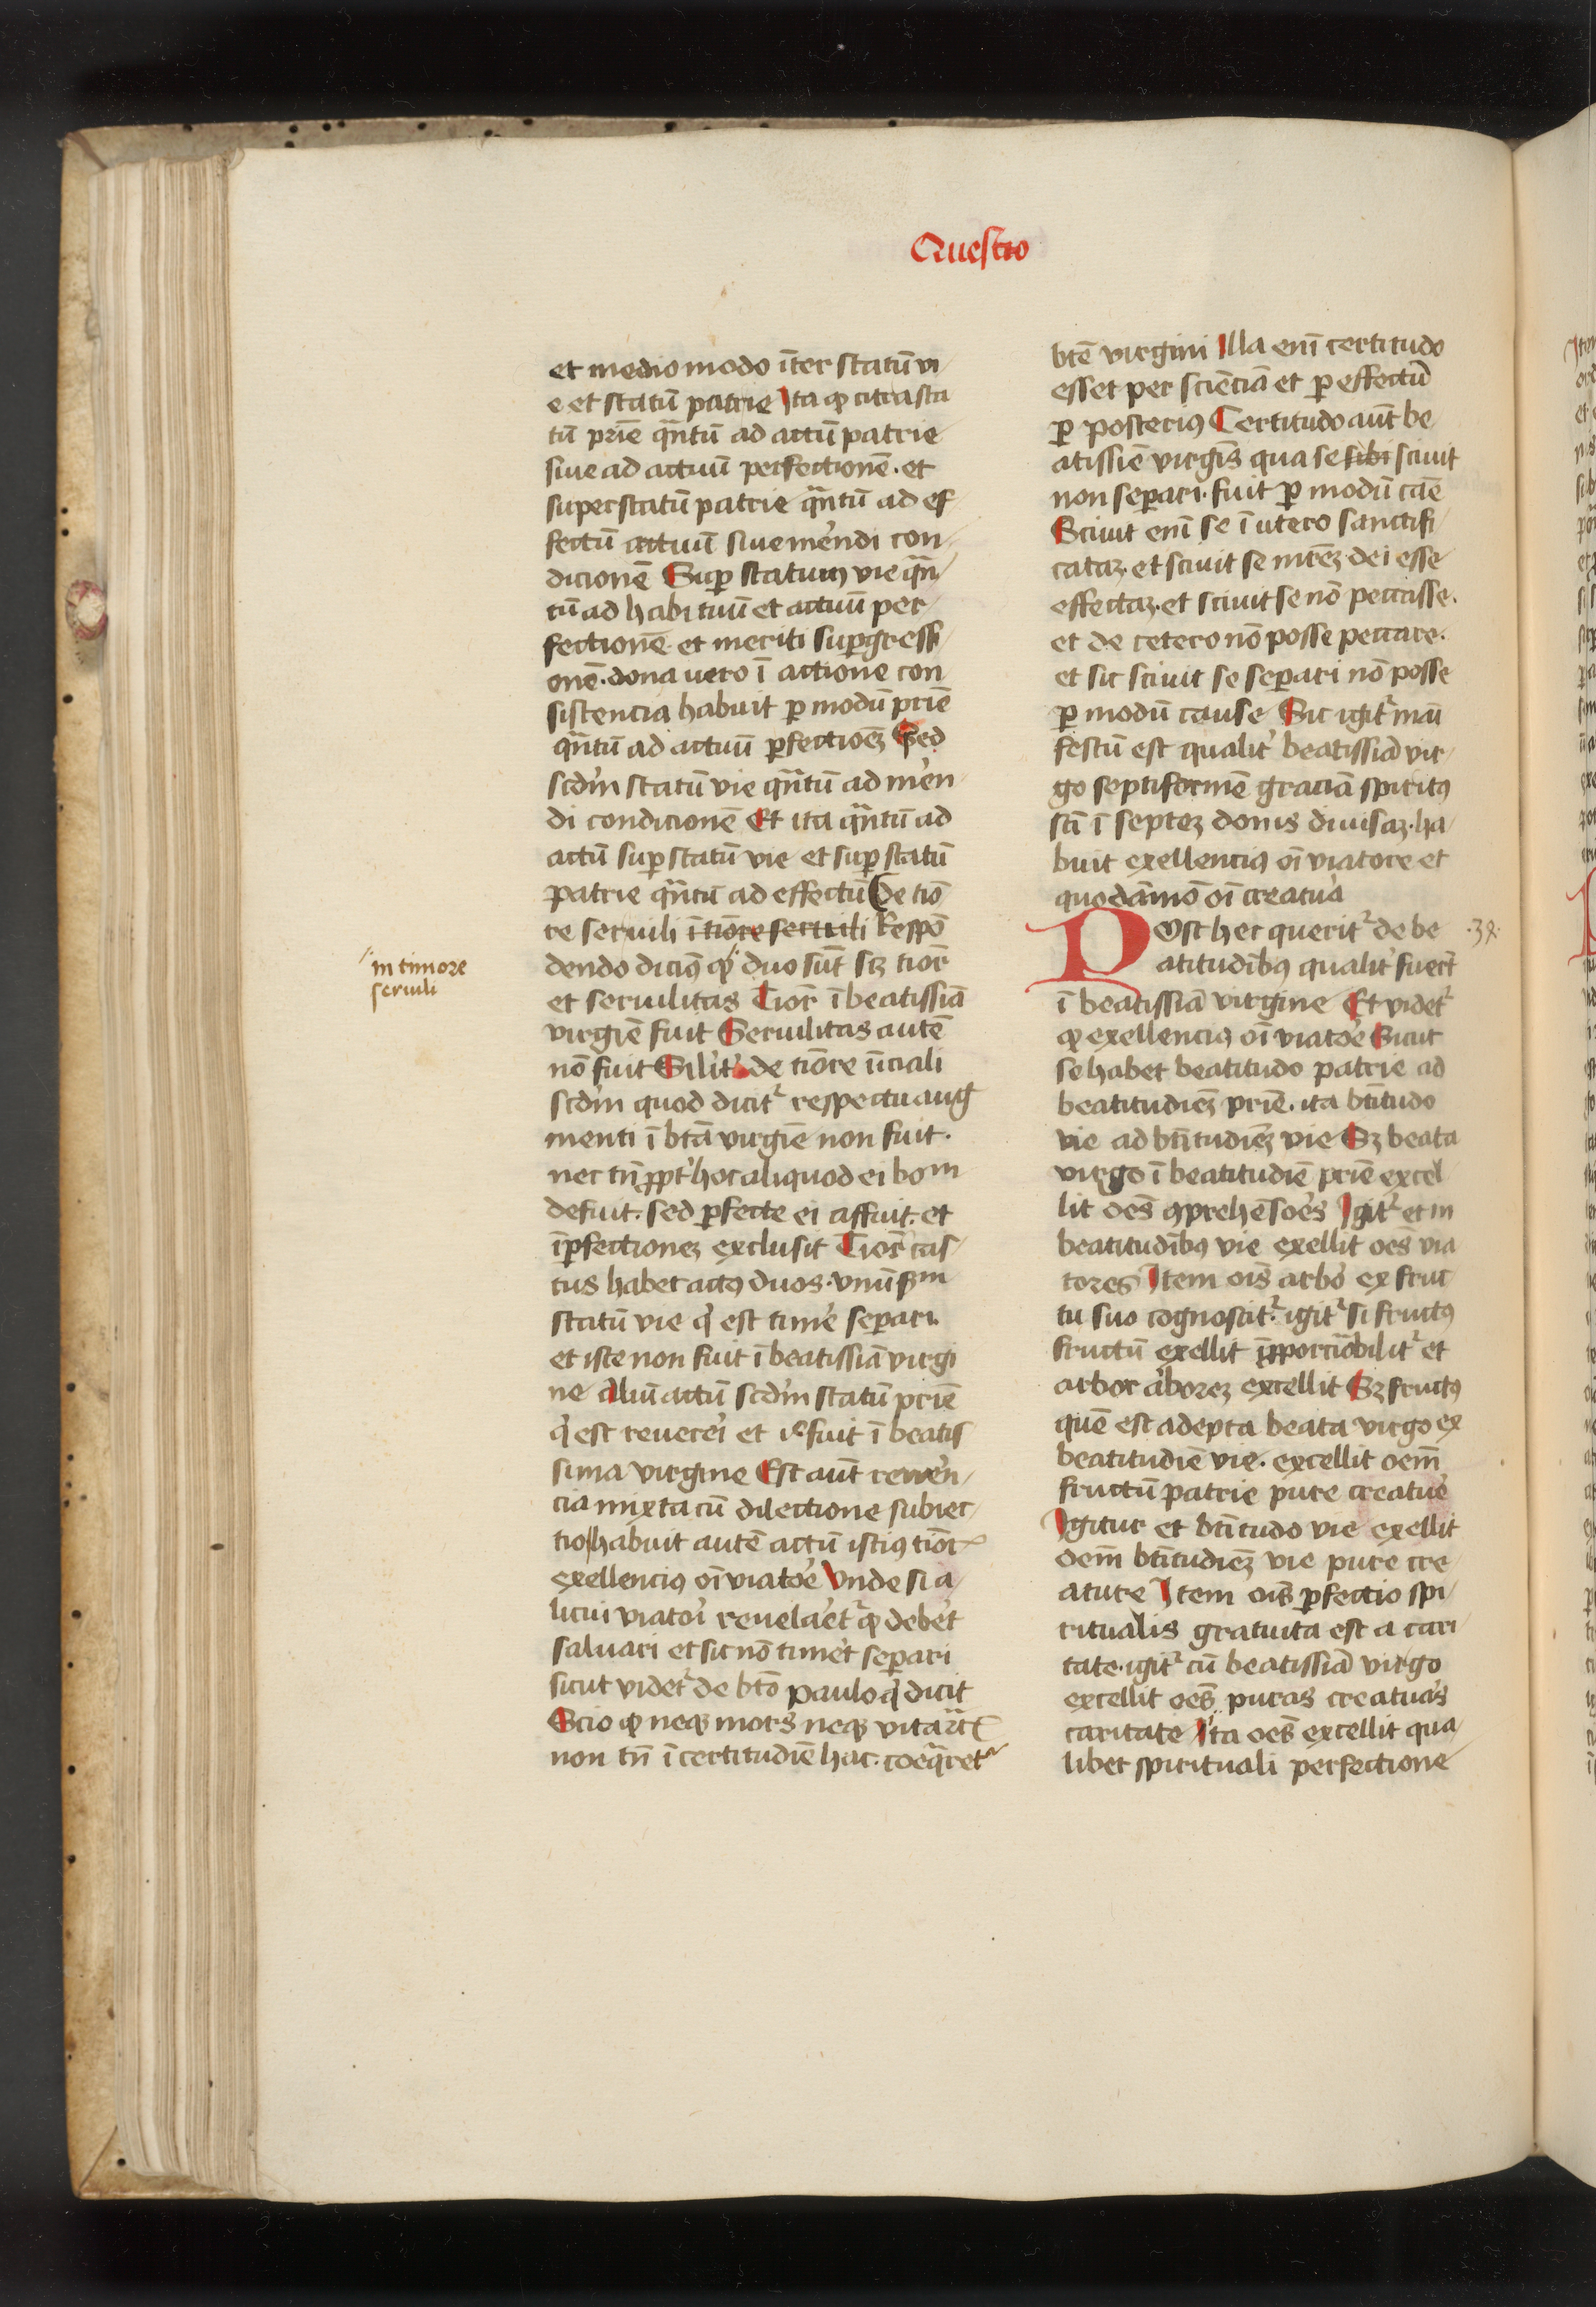 Questio
et medio modo īter statū vi
e et statū patrie Ita ꝙ citra sta
tū pr̄ie qͣntū ad actū patrie
siue ad actuū perfectionē· et
super statū patrie qͣntū ad ef
fectū actuū siue mēndi con
dicionē Suꝑ statum vie qͣn
tū ad habituū et actuū per
fectionē· et meriti suꝑgressi
onē· dona uero ī actione con
sistencia habuit ꝑ modū pr̄ie
qͣntū ad actuū ꝑfectioeꝫ Sed
scd̄m statū vie qͣntū ad mēn
di condicionē Et ita qͣntū ad
actū suꝑ statū vie et suꝑ statū
patrie qͣntū ad effectū De tiō
re seruili ī tiōre seruili Respō
in timore
seruili
dendo dicimꝰ ꝙ duo sūt sꝫ tior̄
et seruilitas Tior̄ ī beatissīa
virgīe fuit Seruilitas autē
nō fuit Silit̓ de tiōre īiciali
scd̄m quod dicit᷑ respectu aug
menti ī bt̄a virgīe non fuit·
nec tn̄ ꝓpt̓ hoc aliquod ei bom
defuit· sed ꝑfecte ei affuit· et
īꝑfectioneꝫ exclusit Tior̄ cas
tus habet actꝰ duos· vnū sm
statū vie q̓ est timē seꝑari
et iste non fuit ī beatissīa virgi
ne aliū actū scd̄m statū pr̄ie
q̓ est reuerēi et iͨ fuit ī beatis
sima virgine Est aūt reuerēn
cia mixta cū dilectione subiec
tio habuit autē actū istiꝰ tior̄
exellenciꝰ oī viatoē Vnde si a
licui viatoī reuelaēt᷑ ꝙ debēt
saluari et sic nō timēt seꝑari
sicut videt᷑ de bt̄o paulo q̓ dicit
Scio ꝙ neqꝫ mors neqꝫ vita ꝛc̄
non tn̄ ī certitudīe hac· coeqͣret᷑
bt̄e virgini Illa enī certitudo
esset per sciēciā et ꝑ effectū
ꝑ posteriꝰ Certitudo aūt be
atissīe virgīs qua se sibi sciuit
non seꝑari· fuit ꝑ modū cāe
Sciuit enī se ī utero sanctifi
cataꝫ· et sciuit se mr̄eꝫ dei esse
effectaꝫ· et sciuit se nō peccasse·
et de cetero nō posse peccare·
et sic sciuit se seꝑari nō posse
ꝑ modū cause Sic igit᷑ māi
festū est qualit̓ beatissīa vir
go septiformē graciā spiritꝰ
sc̄i ī septeꝫ donis diuisaꝫ· ha
buit exellenciꝰ oī viatore et
quodāmō oī creatuā
Post hec querit᷑ de be
·38·
atitudībꝰ qualit̓ fuerīt
ī beatissīa virgine Et videt᷑
ꝙ exellenciꝰ oī viatoē Sicut
se habet beatitudo patrie ad
beatitudīeꝫ pr̄ie· ita bt̄itudo
vie ad bt̄itudīeꝫ vie Sꝫ beata
virgo ī beatitudīe pr̄ie excel
lit oēs ꝯprehēsoēs Igit᷑ et in
beatitudībꝰ vie exellit oēs via
tores Item oīs arbō ex fruc
tu suo cognoscit᷑· igit᷑ si fructꝰ
fructū exellit īꝓporcioābilit᷑ et
arbor āboreꝫ excellit Sꝫ fructꝰ
quē est adepta beata virgo ex
beatitudīe vie· excellit oem̄
fructū patrie pure creatuē
Igitur et bt̄itudo vie exellit
oem̄ bt̄itudīeꝫ vie pure cre
ature Item oīs ꝑfectio spi
ritualis gratuita est a cari
tate· igit᷑ cū beatissīa virgo
excellit oēs puras creatuās
caritate Ita oēs excellit qua
libet spirituali perfectione